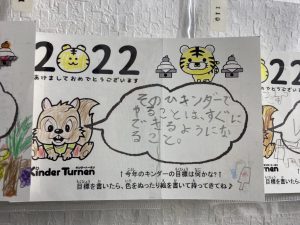 2022
あけましておめでとうございます
そのひキンダーで
やることは、すぐに
できるようにな
ること。
Kinder Turnen
↑今年のキンダーの目標は何かな?↑
目標を書いたら、色をぬったり絵を書いて持ってきてね♪